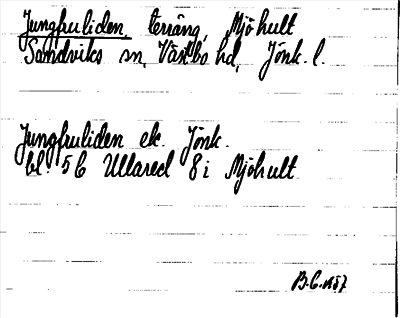 Jungfruliden, terräng, Mjöhult
Sandviks sn, Västbo hd, Jönk. l.
Jungfruliden ek. Jönk.
bl. 5C Ullared 8i Mjöhult